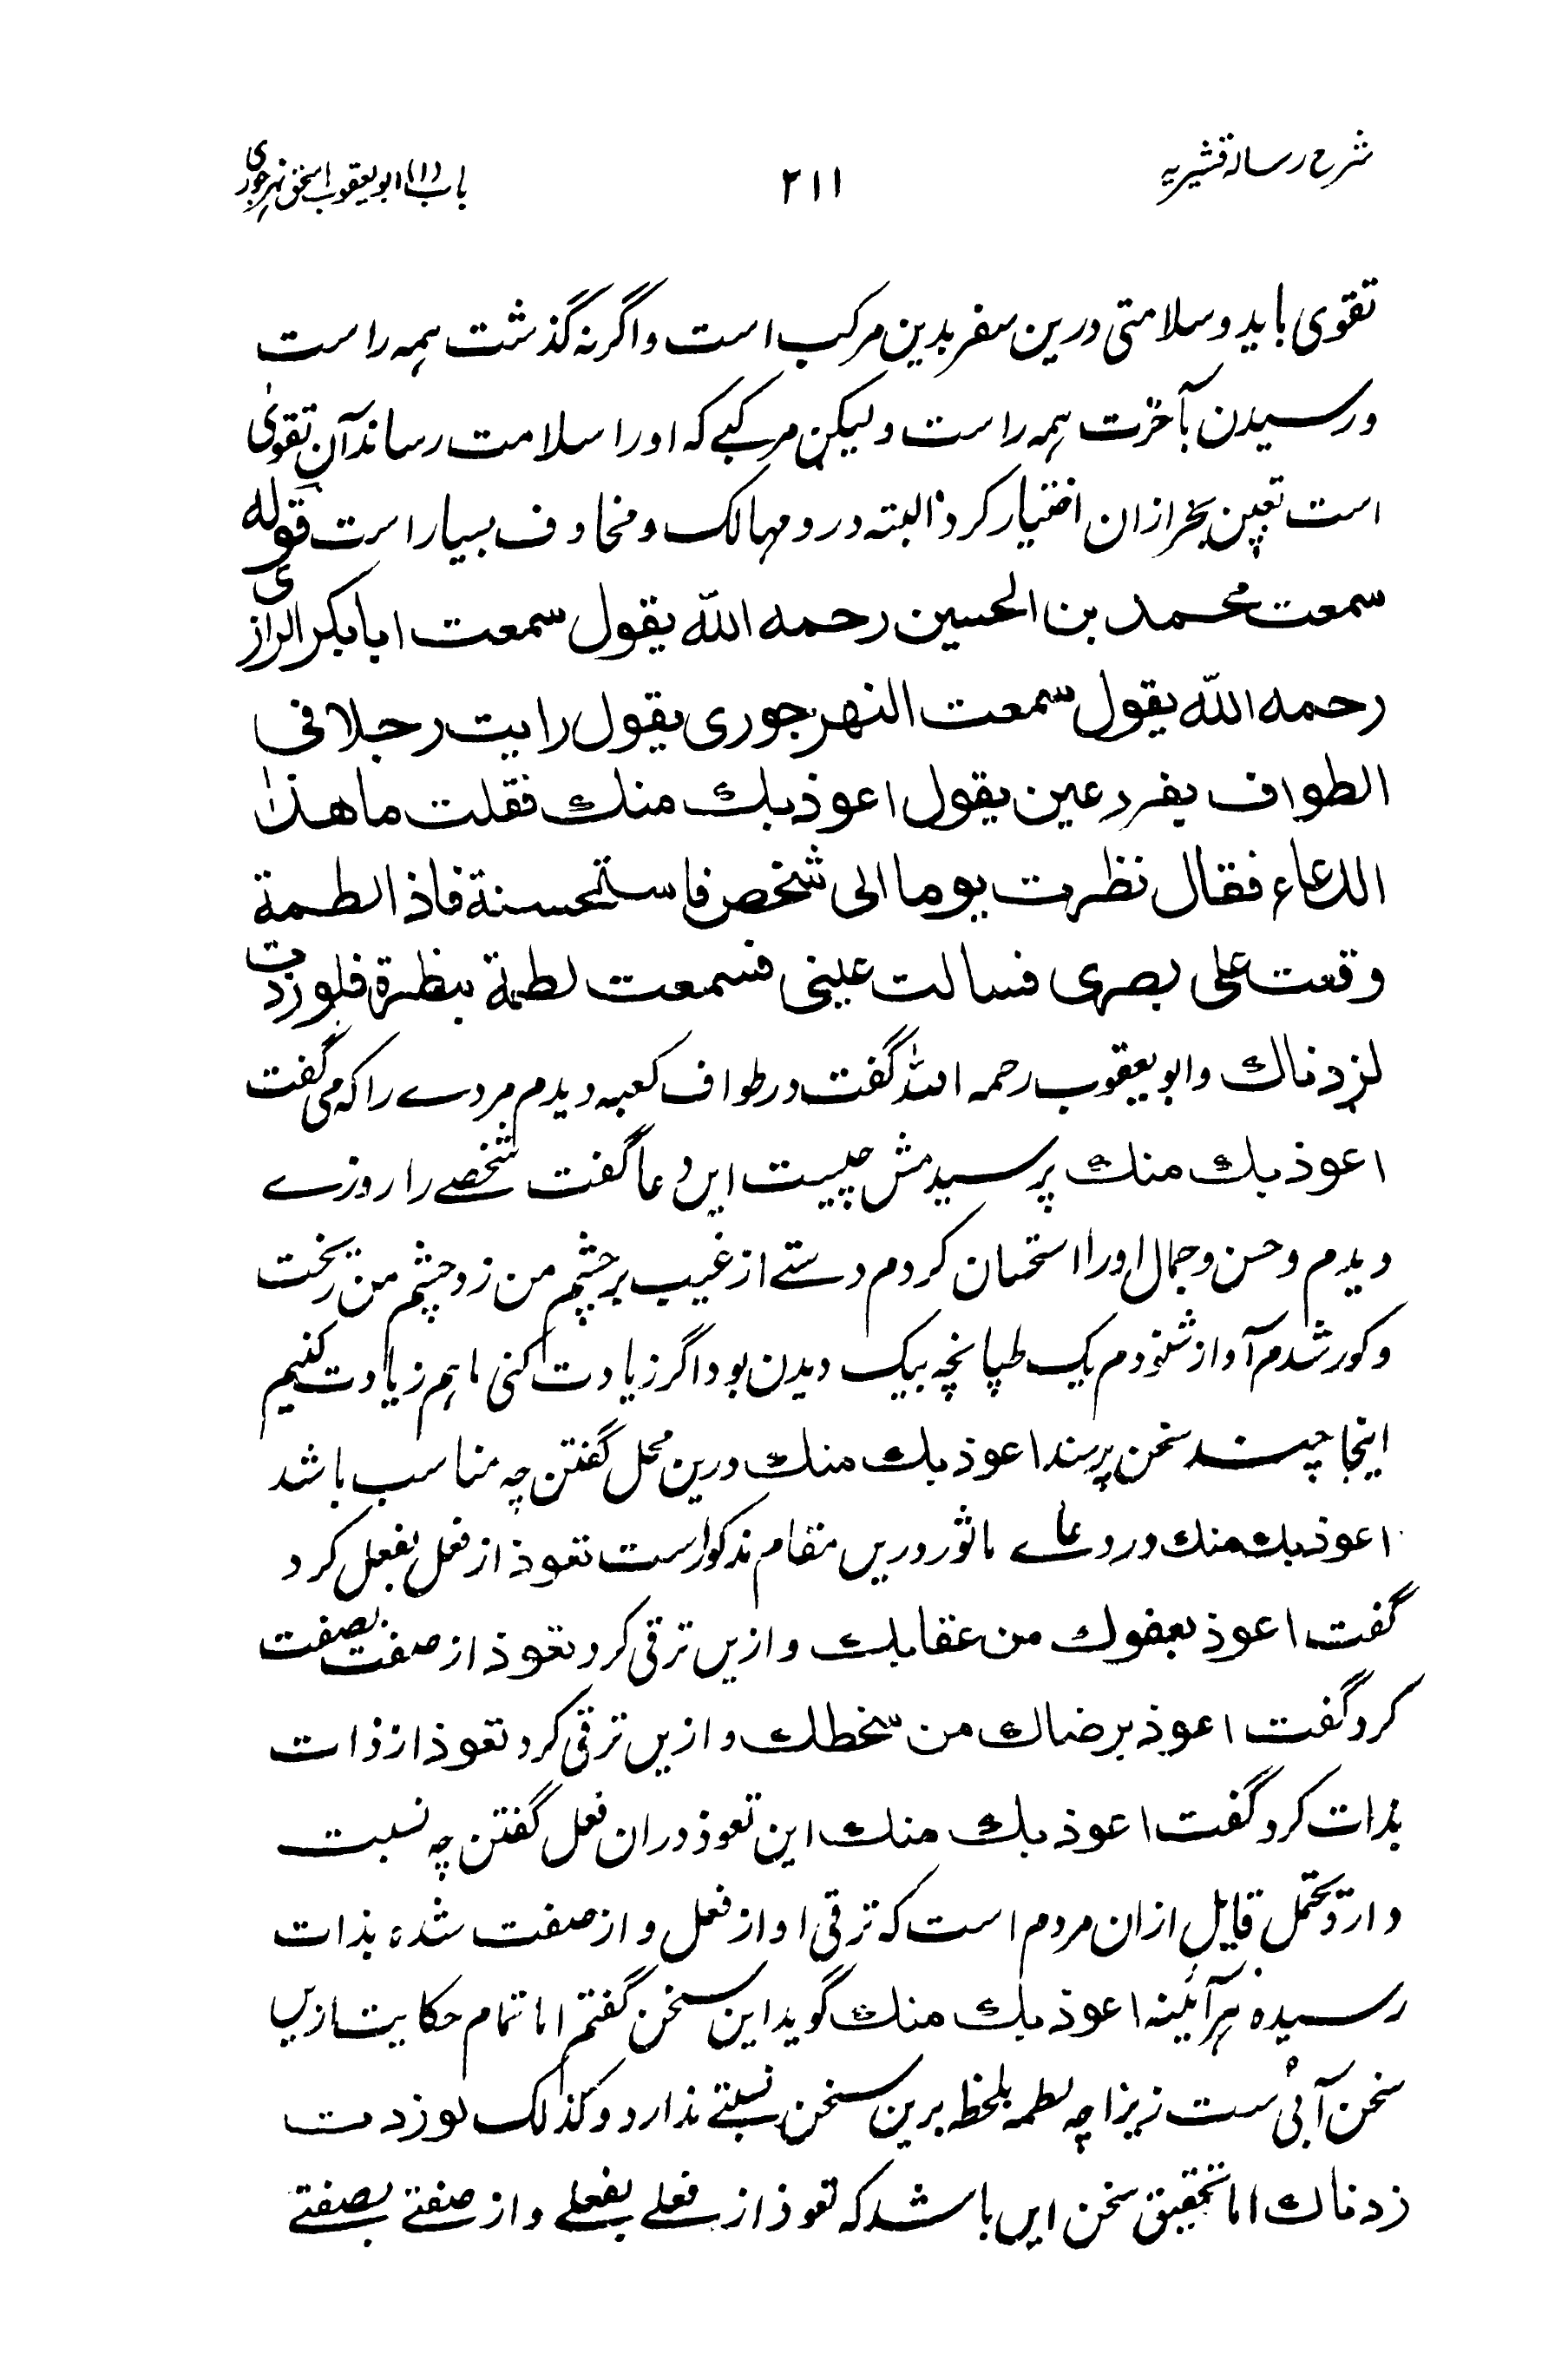 شرح رسالہ قشیریہ
۲۱۱
باب (۱) ابو یعقوب اسحٰق نہرجوری
تقوی باید و سلامتی درین سفر بدین مرکب است واگرنہ گذشت ہمہ راست
ورسیدن بآخرت ہمہ راست ولیکن مرکبے کہ اورا سلامت رساند آن تقویٰ
است تعین بحر ازان اختیار کرد البتہ درو مہالک ومخاوف بسیار است قوله
سمعت محمد بن الحسین رحمه الله یقول سمعت ابا بکر الرازی
رحمه الله یقول سمعت النهرجوری یقول رایت رجلا فی
الطواف بفرد عین یقول اعوذ بك منك فقلت ما هذا
الدعاء فقال نظرت یوما الی شخص فاستحسنتة فاذا لطمة
وقعت علی بصری فسالت عینی فسمعت لطمة بنظرة فلو زدت
لزدناك وابو یعقوب رحمہ اللہ گفت در طواف کعبہ دیدم مردے را کہ می گفت
اعوذ بك منك پرسیدمش چیست ایں دعا گفت شخصے را روزے
دیدم وحسن وجمال اورا استحسان کردم دستے از غیب بر چشم من زد چشم من ریخت
وکور شدم آواز شنودم یک طپانچہ بیک دیدن بود اگر زیادت کنی ماہم زیادت کنیم
اینجا چند سخن پرسند اعوذ بك منك درین محل گفتن چہ مناسب باشد
اعوذ بك منك در دعاے ماثور دریں مقام مذکور است تعوذ از فعل بفعل کرد
گفت اعوذ بعفوك من عقابك وازیں ترقی کرد تعوذ از صفت بصفت
کرد گفت اعوذ برضاك من سخطك وازیں ترقی کرد تعوذ از ذات
بذات کرد گفت اعوذ بك منك این تعوذ دران فعل گفتن چہ نسبت
دارد محتمل قایل ازان مردم است کہ ترقی او از فعل واز صفت شدہ بذات
رسیدہ ہرآئینہ اعوذ بك منك گوید این سخن گفتم اما تمام حکایت ازیں
سخن آبی ست زیرا چہ لطمہ بلحظہ برین سخن نسبتے ندارد وکذالک لو زدت
زدناك اما تحقیق سخن ایں باشد کہ تعوذ از فعلے بفعلے واز صفتے بصفتے